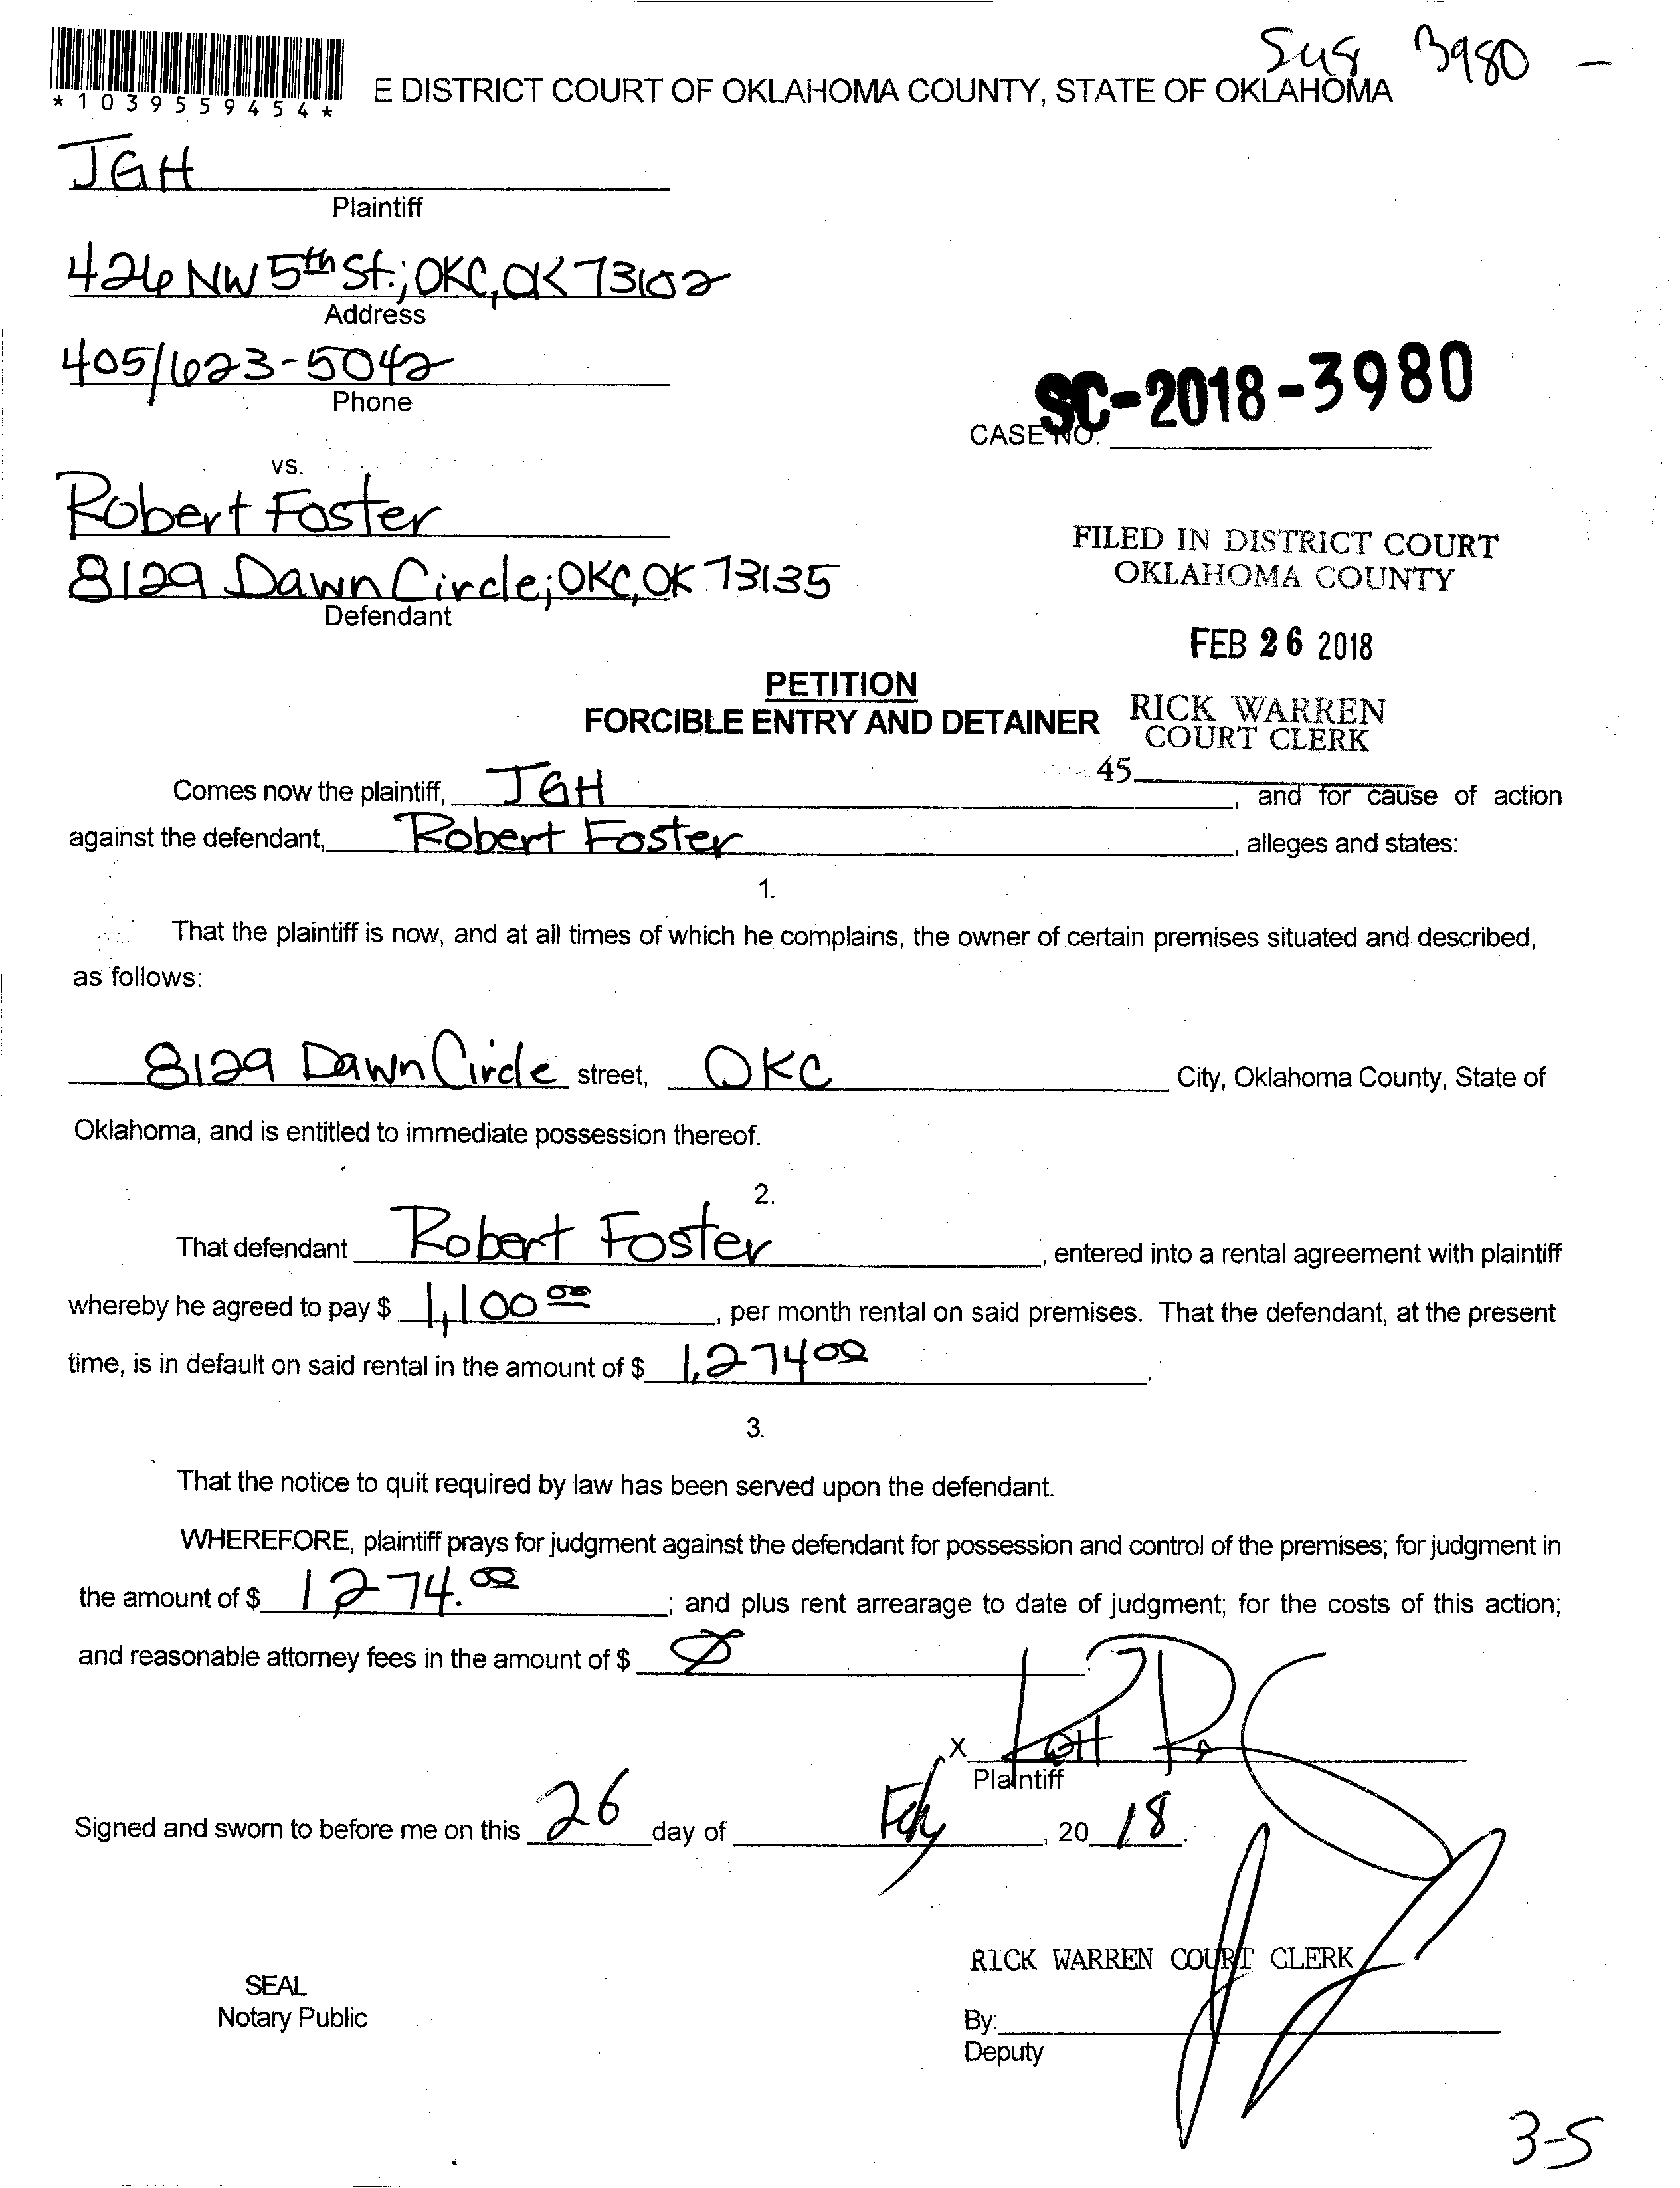 3980 -
*1039559454*
E DISTRICT COURT OF OKLAHOMA COUNTY, STATE OF OKLAHOMA
JGH
Plaintiff
426 NW 5th St.; OKC, OK 73102
Address
405/623-5042
Phone
SC-2018-3980
CASE NO.
vs.
Robert Foster
8129 Dawn Circle; OKC, OK 73135
Defendant
FILED IN DISTRICT COURT
OKLAHOMA COUNTY
FEB 26 2018
PETITION
FORCIBLE ENTRY AND DETAINER
RICK WARREN
COURT CLERK
45
Comes now the plaintiff, JGH, and for cause of action
against the defendant, Robert Foster, alleges and states:
1.
That the plaintiff is now, and at all times of which he complains, the owner of certain premises situated and described,
as follows:
8129 Dawn Circle street, OKC City, Oklahoma County, State of
Oklahoma, and is entitled to immediate possession thereof.
2.
That defendant Robert Foster, entered into a rental agreement with plaintiff
whereby he agreed to pay $ 1,100 00, per month rental on said premises. That the defendant, at the present
time, is in default on said rental in the amount of $ 1,274 00.
3.
That the notice to quit required by law has been served upon the defendant.
WHEREFORE, plaintiff prays for judgment against the defendant for possession and control of the premises; for judgment in
the amount of $ 1274.00; and plus rent arrearage to date of judgment; for the costs of this action;
and reasonable attorney fees in the amount of $ Ø.
X
Plaintiff
Signed and sworn to before me on this 26 day of Feb, 20 18.
RICK WARREN COURT CLERK
SEAL
Notary Public
By:
Deputy
3-5